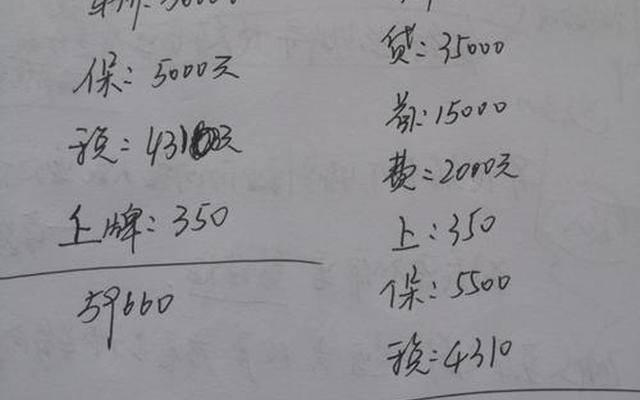 保：5000元
税：4310元
上牌：350
59660
贷：35000
首：15000
费：2000元
上：350
保：5500
税：4310